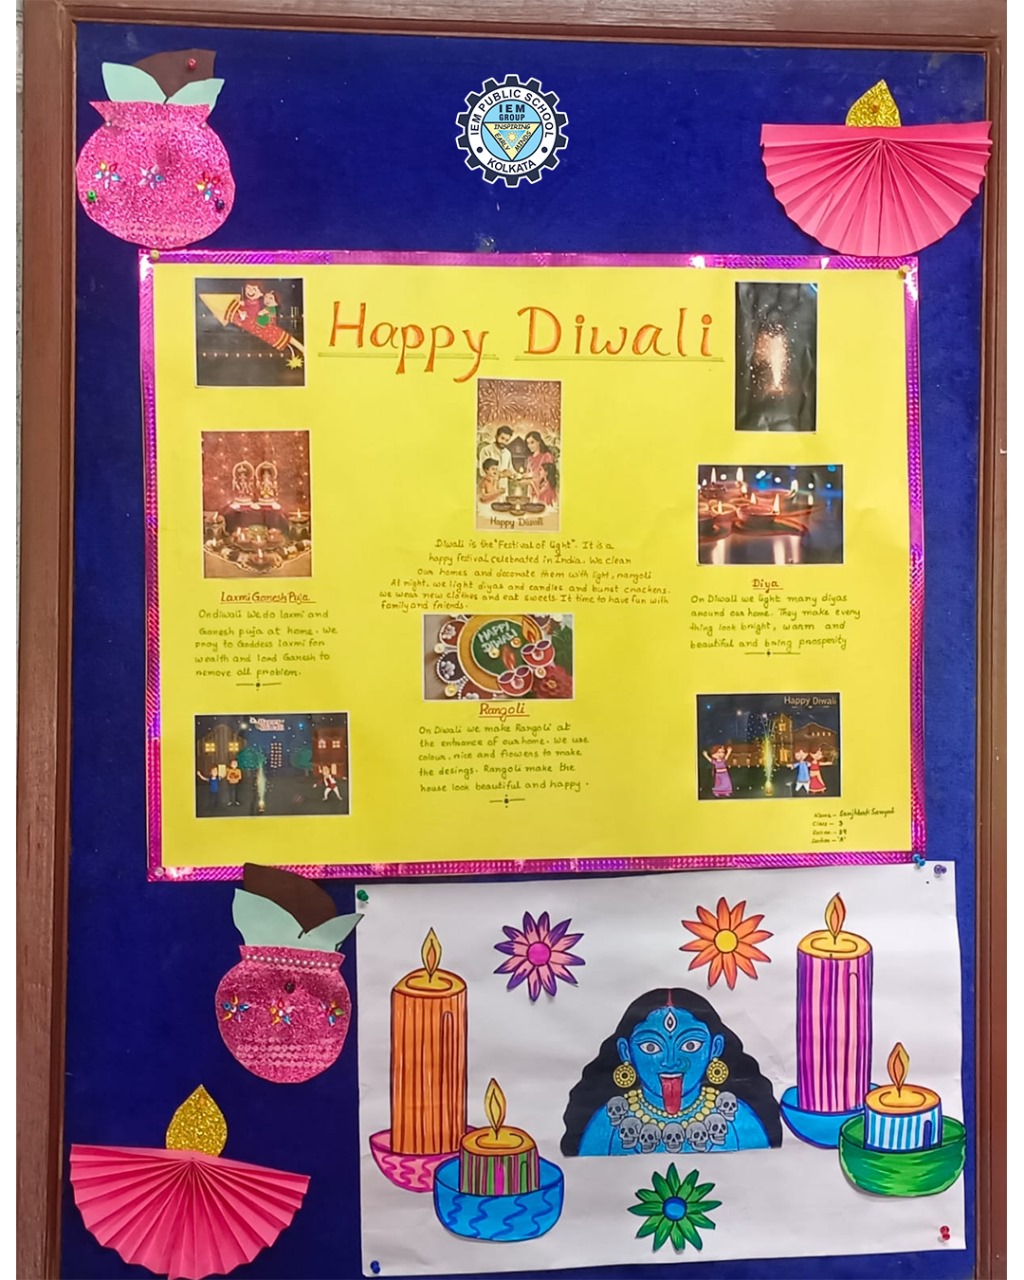 IEM PUBLIC SCHOOL
IEM
GROUP
INSPIRING
EARLY
MINDS
KOLKATA
Happy Diwali
Happy Diwali
Diwali is the "Festival of light". It is a
happy festival celebrated in India. We clean
Our homes and decorate them with light, rangoli
At night, we light diyas and candles and burst crackers.
we wear new clothes and eat sweets. It time to have fun with
family and friends.
Laxmi Ganesh Puja
On diwali we do laxmi and
Ganesh puja at home. We
pray to Goddess laxmi for
wealth and lord Ganesh to
remove all problem.
Diya
On Diwali we light many diyas
around our home. They make every
thing look bright, warm and
beautiful and bring prosperity
HAPPY
DIWALI
Rangoli
On Diwali we make Rangoli at
the entrance of our home. We use
colour, rice and flowers to make
the desings. Rangoli make the
house look beautiful and happy.
Happy
Diwali
Happy Diwali
Name - Sanyal
Class - 3
Section - 'A'